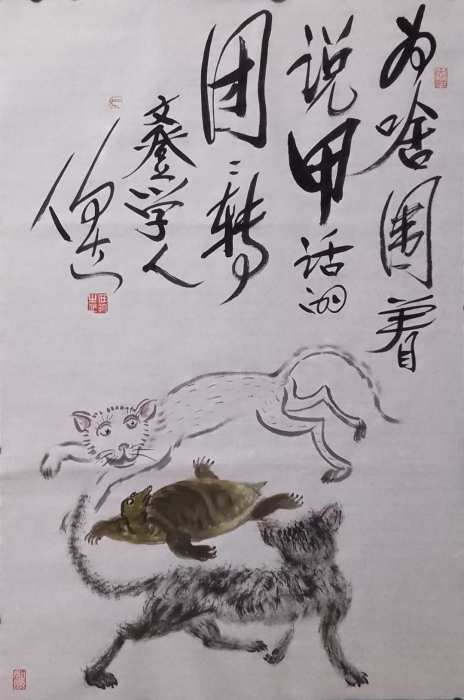 为啥围着
说甲话的
团〻转
文登学人